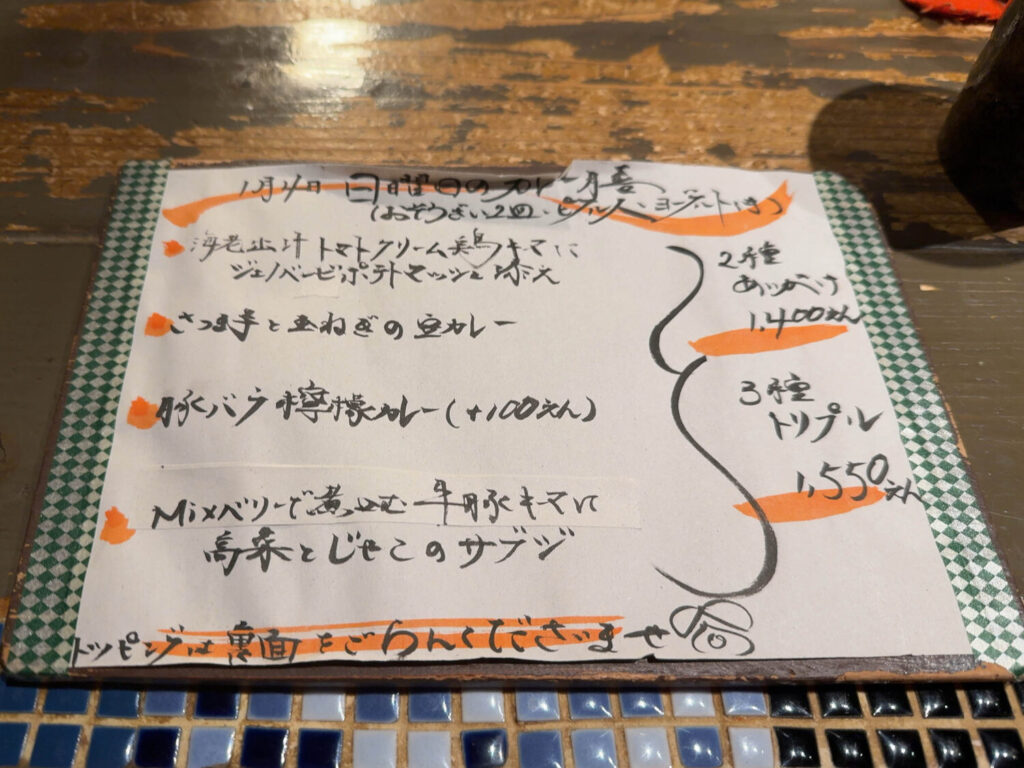 1月4日 日曜日のカレー膳
(おそうざい2皿、ピクルス、ヨーグルト付)
海老出汁トマトクリーム鶏キマに
ジェノベーゼポテトマッシュ添え
さつま芋と玉ねぎの豆カレー
豚バラ檸檬カレー(+100えん)
Mixベリーで煮込む牛豚キマに
高菜とじゃこのサブジ
2種
あいがけ
1,400えん
3種
トリプル
1,550えん
トッピングは裏面をごらんくださいませ